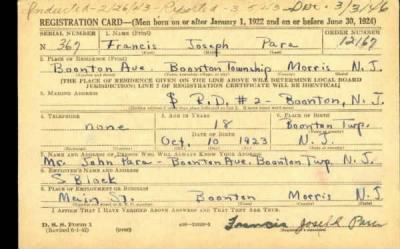 Inducted - 2/26/43 - Reported - 3-5-43 - Dis. 3/3/46
REGISTRATION CARD—(Men born on or after January 1, 1922 and on or before June 30, 1924)
SERIAL NUMBER
1. NAME (Print)
ORDER NUMBER
N 367
Francis Joseph Para
12167
2. PLACE OF RESIDENCE (Print)
Boonton Ave. Boonton Township Morris N.J.
[THE PLACE OF RESIDENCE GIVEN ON THE LINE ABOVE WILL DETERMINE LOCAL BOARD
JURISDICTION; LINE 2 OF REGISTRATION CERTIFICATE WILL BE IDENTICAL]
3. MAILING ADDRESS
R.D. #2 - Boonton, N.J.
4. TELEPHONE
5. AGE IN YEARS
6. PLACE OF BIRTH
none
18
Boonton Twp.
DATE OF BIRTH
Oct. 10 1923
N.J.
7. NAME AND ADDRESS OF PERSON WHO WILL ALWAYS KNOW YOUR ADDRESS
Mr. John Para - Boonton Ave. Boonton Twp. N.J.
8. EMPLOYER'S NAME AND ADDRESS
S. Black
9. PLACE OF EMPLOYMENT OR BUSINESS
Main St. Boonton Morris N.J.
I AFFIRM THAT I HAVE VERIFIED ABOVE ANSWERS AND THAT THEY ARE TRUE.
D. S. S. Form 1
Francis Joseph Para